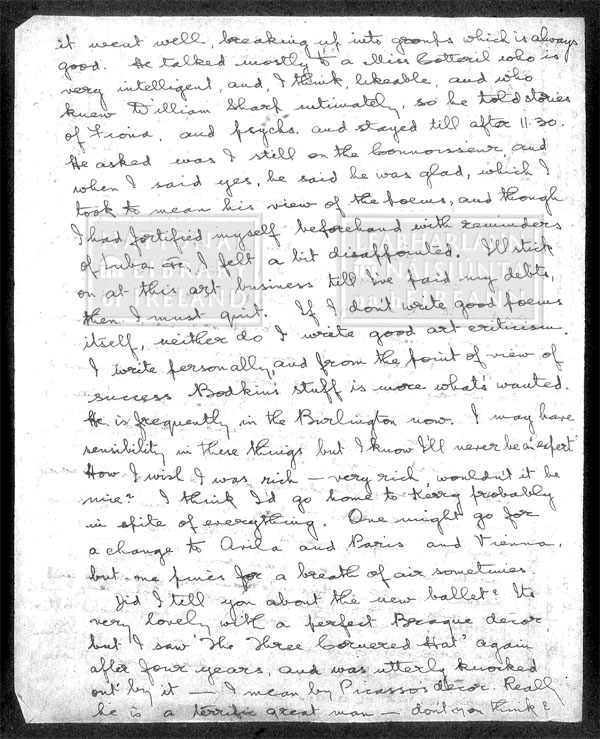 it went well, breaking up into groups which is always
good. He talked mostly to a Miss Cotteril who is
very intelligent, and, I think, likeable, and who
knew William Sharp intimately, so he told stories
of Fiona, and psychs. and stayed till after 11.30.
He asked was I still on the Connoisseur, and
when I said yes, he said he was glad, which I
took to mean his view of the poems, and though
I had fortified myself beforehand with reminders
of I felt a bit disappointed. I'll stick
on at this art business till I've paid my debts,
then I must quit. If I don't write good poems
itself, neither do I write good art criticism.
I write personally, and from the point of view of
success Bodkin's stuff is more what's wanted.
He is frequently in the Burlington now. I may have
sensibility in these things but I know I'll never be an 'expert'
How I wish I was rich — very rich, wouldn't it be
nice? I think I'd go home to Kerry probably
in spite of everything. One might go for
a change to Avila and Paris and Vienna,
but one pines for a breath of air sometimes.
Did I tell you about the new ballet? Its
very lovely with a perfect Braque décor
but I saw 'The Three Cornered Hat' again
after four years, and was utterly knocked
out by it — I mean by Picasso's décor. Really
he is a terrific great man — don't you think?
NATIONAL
LIBRARY
OF IRELAND
LEABHARLANN
NÁISIÚNTA
na hÉIREANN